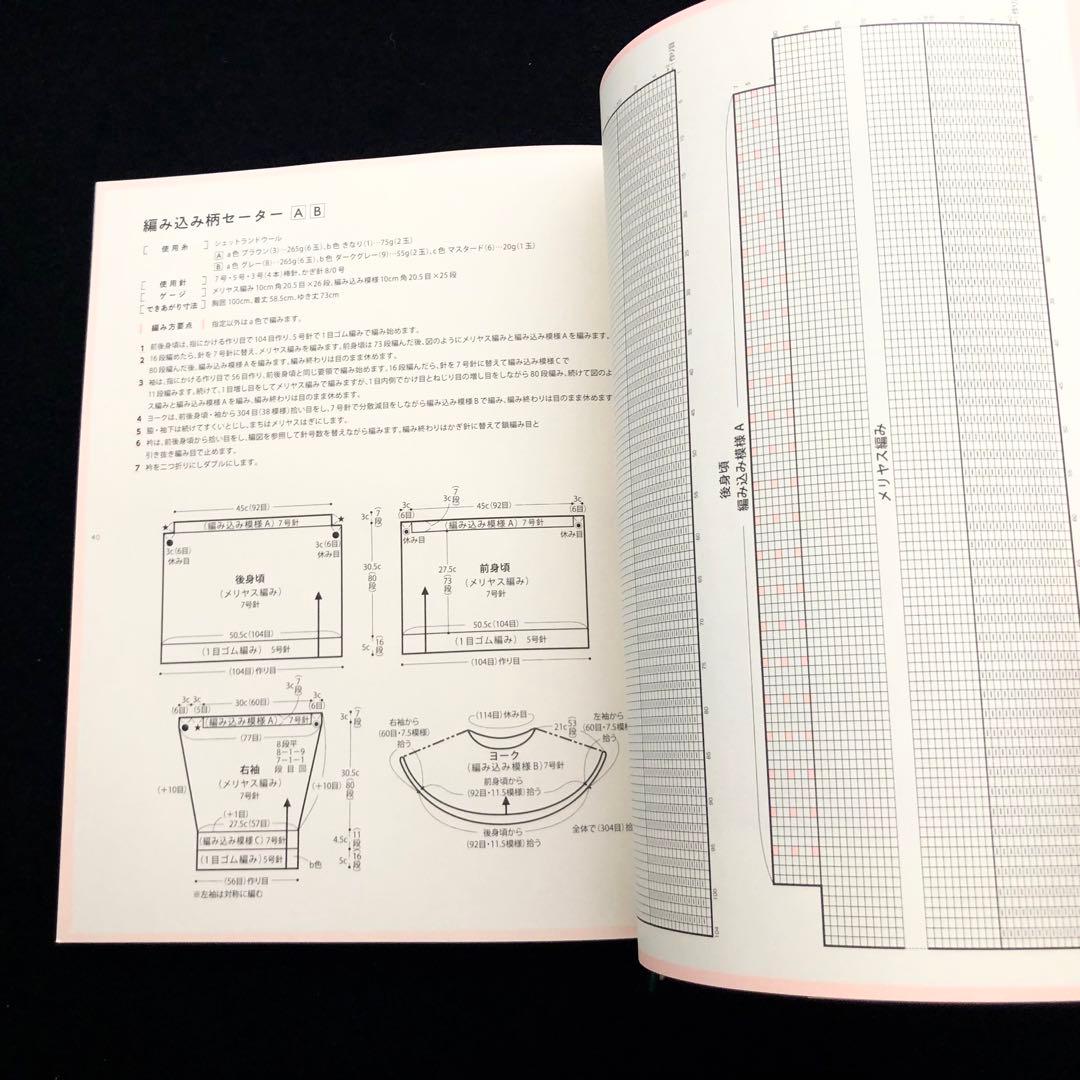 編み込み柄セーター A B
[ 使用糸 ] シェットランドウール
A a色 ブラウン(3)…265g(6玉)、b色 きなり(1)…75g(2玉)
B a色 グレー(8)…265g(6玉)、b色 ダークグレー(9)…55g(2玉)、c色 マスタード(6)…20g(1玉)
[ 使用針 ] 7号・5号・3号(4本)棒針、かぎ針 8/0号
[ ゲージ ] メリヤス編み10cm角20.5目×26段、編み込み模様10cm角20.5目×25段
[できあがり寸法] 胸囲100cm、着丈58.5cm、ゆき丈73cm
編み方要点 指定以外はa色で編みます。
1 前後身頃は、指にかける作り目で104目作り、5号針で1目ゴム編みで編み始めます。
2 16段編めたら、針を7号針に替え、メリヤス編みを編みます。前身頃は73段編んだ後、図のようにメリヤス編みと編み込み模様Aを編みます。
80段編んだ後、編み込み模様Aを編みます。編み終わりは目のまま休めます。
3 袖は、指にかける作り目で56目作り、前後身頃と同じ要領で編み始めます。16段編んだら、針を7号針に替えて編み込み模様Cで
11段編みます。続けて、1目増し目をしてメリヤス編みで編みますが、1目内側でかけ目とねじり目の増し目をしながら80段編み、続けて図のよ
ス編みと編み込み模様Aを編み、編み終わりは目のまま休めます。
4 ヨークは、前後身頃・袖から304目(38模様)拾い目をし、7号針で分散減目をしながら編み込み模様Bで編み、編み終わりは目のまま休めます
5 脇・袖下は続けてすくいとじし、まちはメリヤスはぎにします。
6 衿は、前後身頃から拾い目をし、編図を参照して針号数を替えながら編みます。編み終わりはかぎ針に替えて鎖編み目と
引き抜き編み目で止めます。
7 衿を二つ折りにしダブルにします。
40
45c(92目)
(編み込み模様A) 7号針
3c(6目)
休み目
3c(6目)
休み目
後身頃
(メリヤス編み)
7号針
50.5c(104目)
(1目ゴム編み) 5号針
(104目)作り目
3c(7段)
30.5c(80段)
5c(16段)
3c(6目)
45c(92目)
3c(7段)
3c(6目)
(編み込み模様A) 7号針
休み目
休み目
27.5c(73段)
前身頃
(メリヤス編み)
7号針
50.5c(104目)
(1目ゴム編み) 5号針
(104目)作り目
3c(6目)
3c(5目)
30c(60目)
3c(7段)
3c(6目)
(編み込み模様A) 7号針
(77目)
8段平
8-1-9
7-1-1
段 目 回
右袖
(メリヤス編み)
7号針
(+10目)
(+10目)
(+1目)
27.5c(57目)
(編み込み模様C) 7号針
(1目ゴム編み) 5号針
b色
(56目)作り目
※左袖は対称に編む
3c(7段)
30.5c(80段)
4.5c(11段)
5c(16段)
(114目)休み目
右袖から
(60目・7.5模様)
拾う
21c(53段)
左袖から
(60目・7.5模様
拾う
ヨーク
(編み込み模様B) 7号針
前身頃から
(92目・11.5模様)拾う
後身頃から
(92目・11.5模様)拾う
全体で(304目)拾
後身頃
編み込み模様A
メリヤス編み
作り目